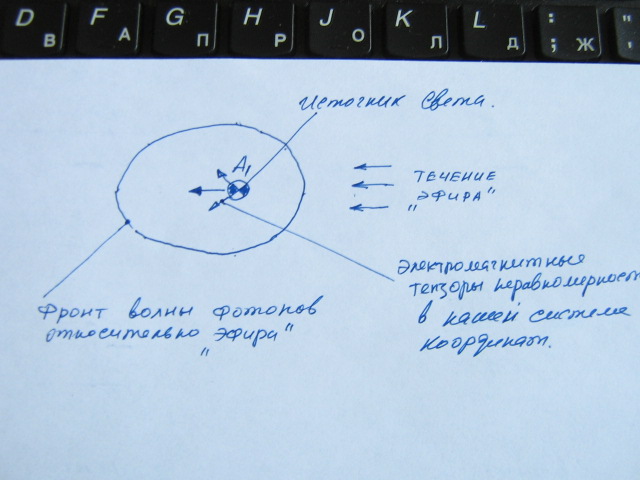 D F G H J K L : "
В А П Р О Л Д ; Ж '
Источник света.
А1
ТЕЧЕНИЕ
"ЭФИРА"
Электромагнитные
тензоры неравномерност
в нашей система
координат.
Фронт волны фотонов
относительно "Эфира"